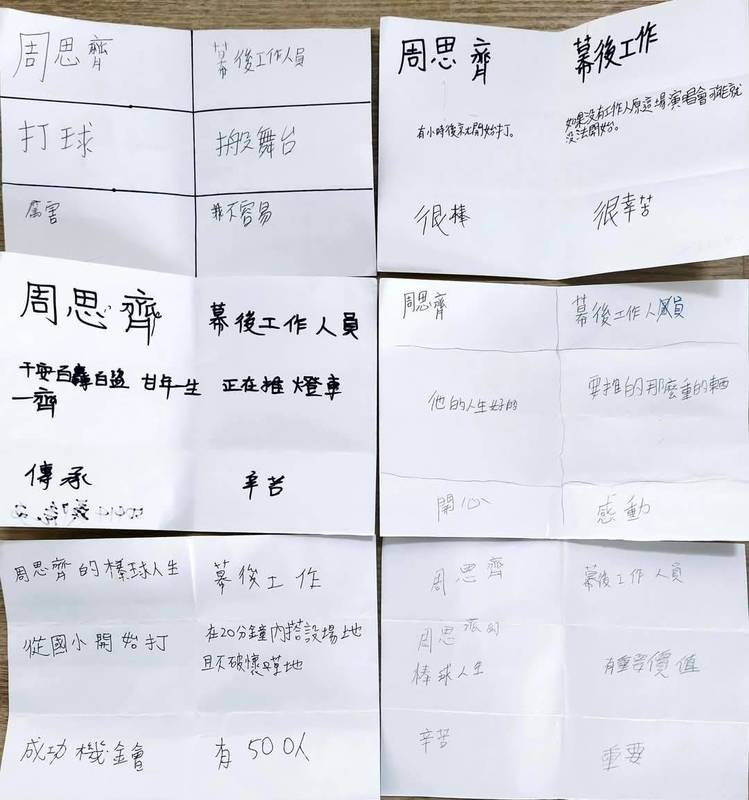 周思齊
幕後工作人員
打球
搬舞台
厲害
不容易
周思齊
幕後工作
有小時後就開始打。
如果沒有工作人原這場演唱會可能就
沒法開始。
很棒
很幸苦
周思齊
幕後工作人員
百轟百盜 廿年一生
一齊
正在推燈車
傳承
辛苦
周思齊
幕後工作人員
他的人生好的
要推的那麼重的車
開心
感動
周思齊的棒球人生
幕後工作
從國小開始打
在20分鐘內搭設場地
且不破懷草地
成功機金會
有500人
周思齊
幕後工作人員
周思齊的
棒球人生
有重要價值
辛苦
重要